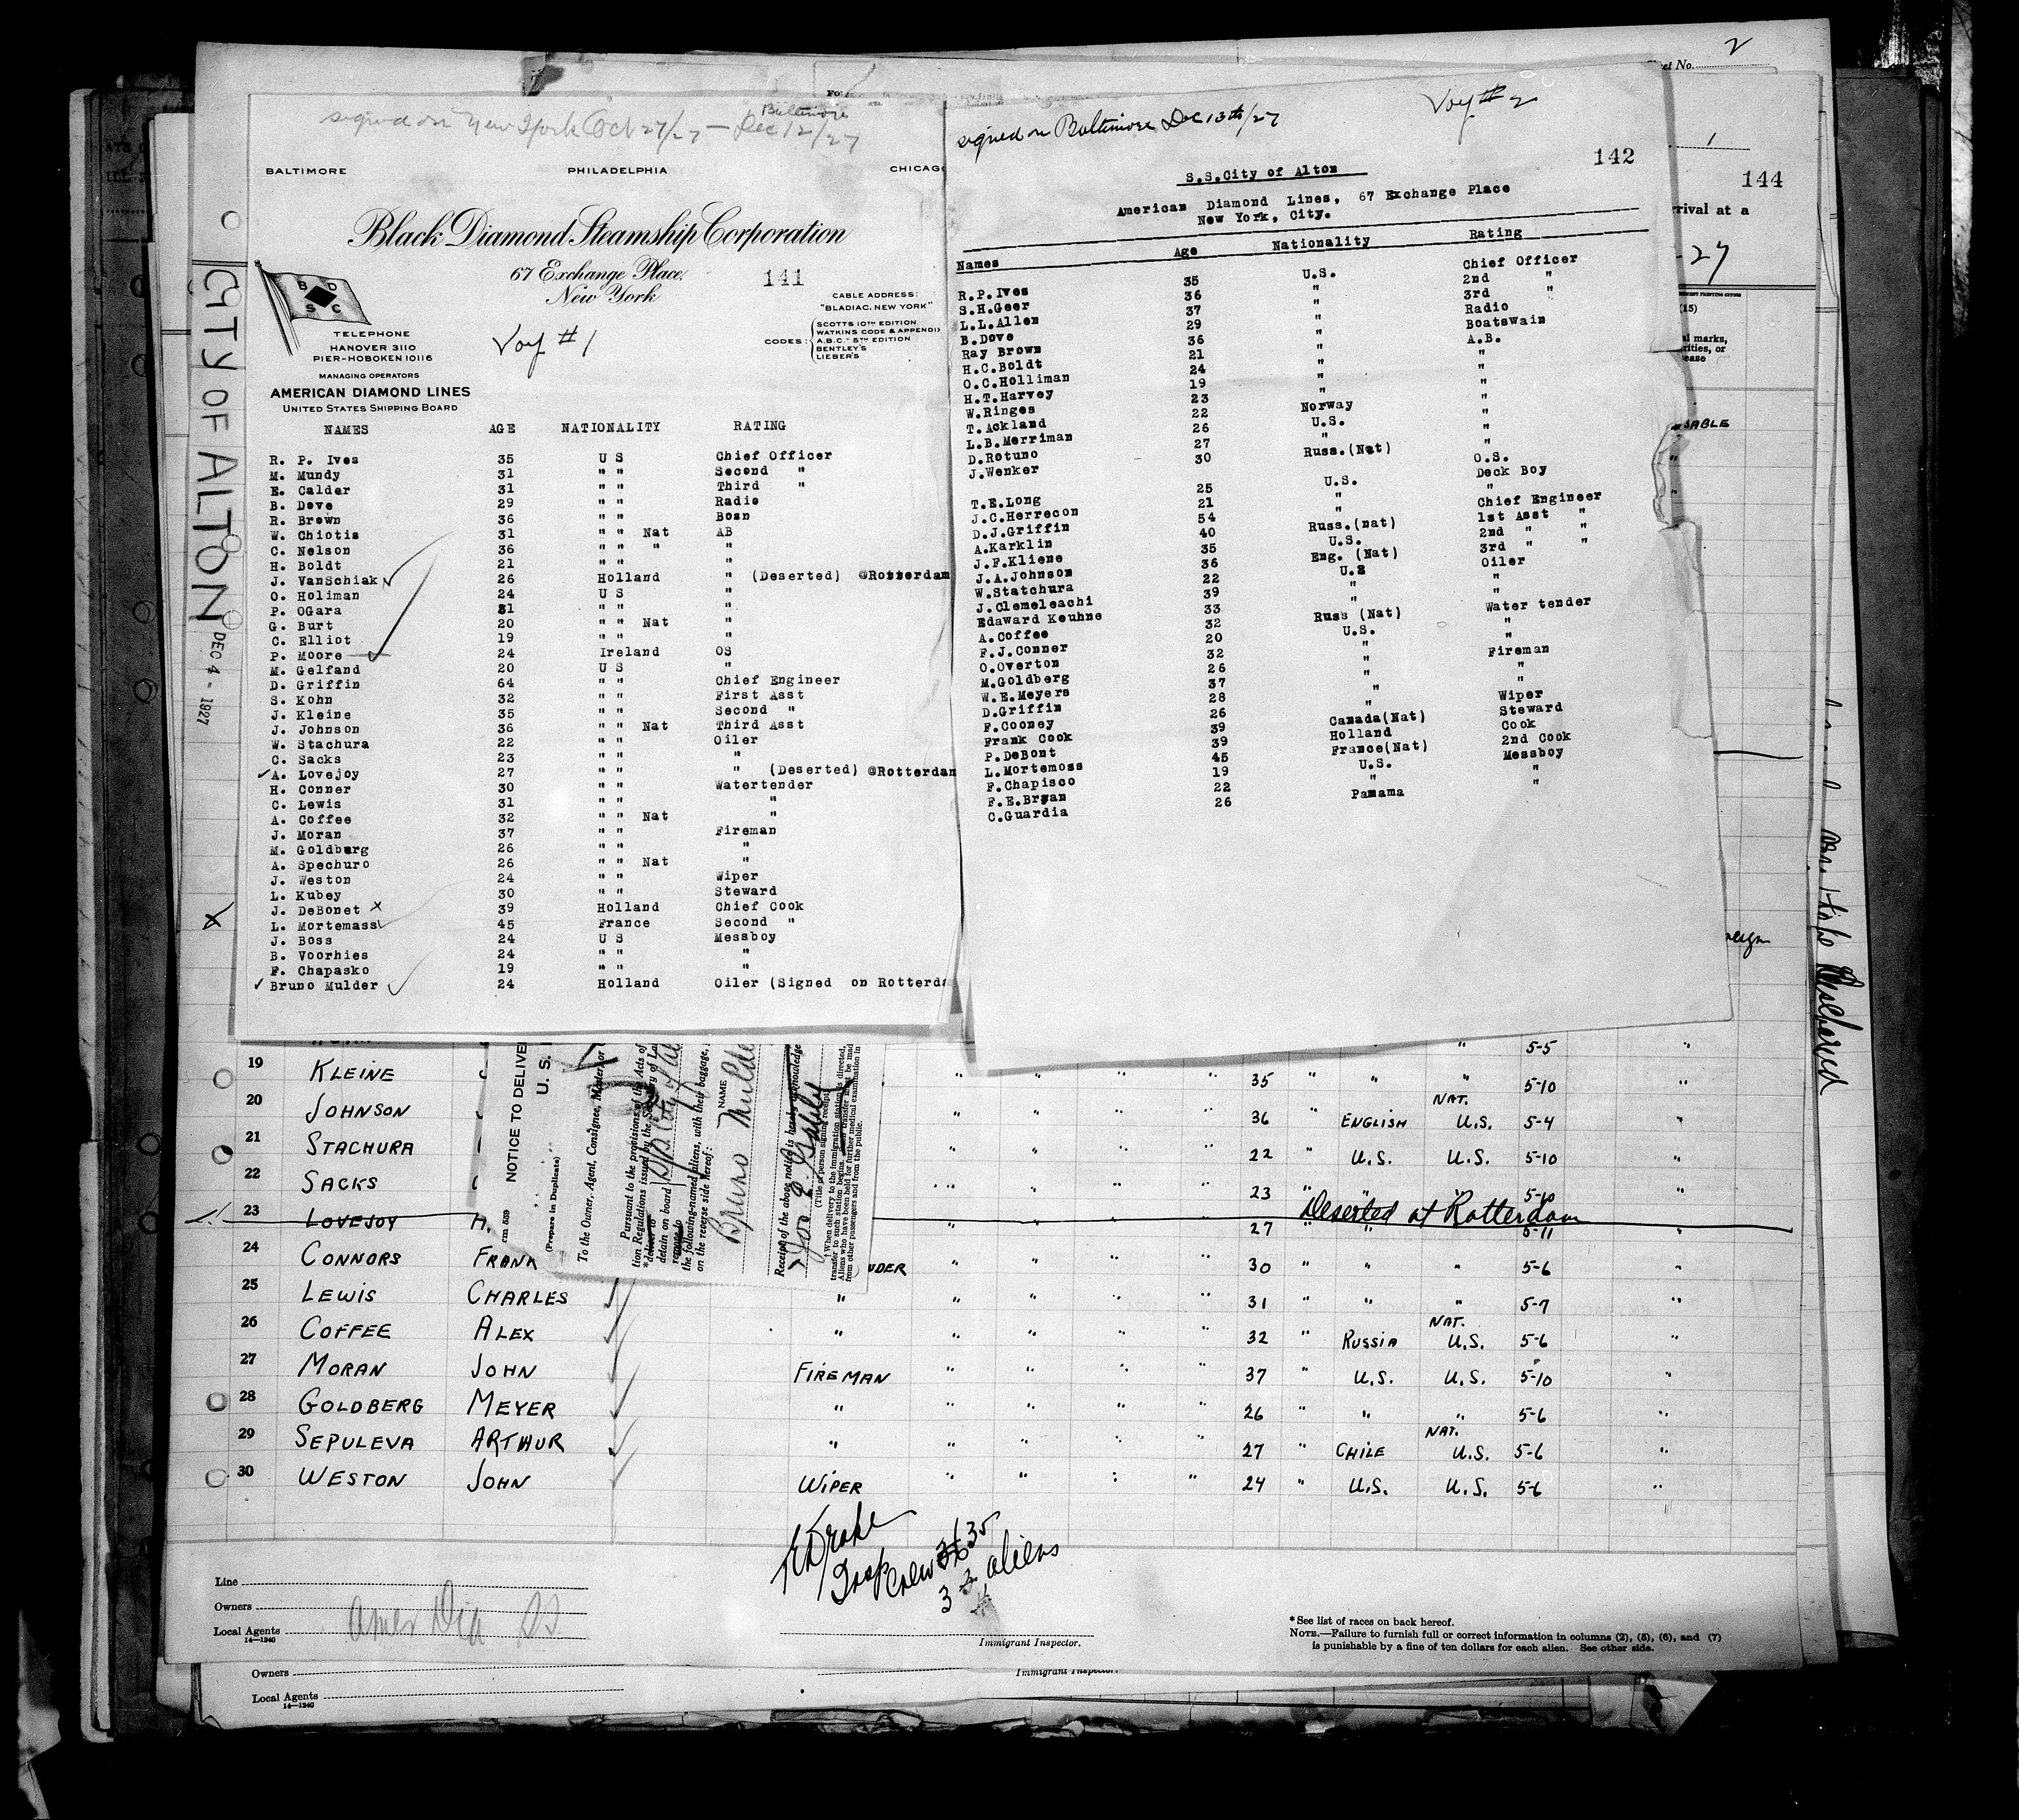 2
Sheet No.
signed on New York Oct 27/27 — Baltimore Dec 12/27
BALTIMORE PHILADELPHIA CHICAGO
Black Diamond Steamship Corporation
67 Exchange Place,
New York
141
B D
S C
CABLE ADDRESS:
"BLADIAC, NEW YORK"
CODES: SCOTTS 10TH EDITION
WATKINS CODE & APPENDIX
A.B.C. 5TH EDITION
BENTLEY'S
LIEBER'S
TELEPHONE
HANOVER 3110
PIER-HOBOKEN 10116
Voy #1
MANAGING OPERATORS
AMERICAN DIAMOND LINES
UNITED STATES SHIPPING BOARD
NAMES AGE NATIONALITY RATING
R. P. Ives 35 U S Chief Officer
M. Mundy 31 " " Second "
E. Calder 31 " " Third "
B. Dove 29 " " Radio
R. Brown 36 " " Bosn
W. Chiotis 31 " " Nat AB
C. Nelson 36 " " " "
H. Boldt 21 " " "
J. VanSchiak 26 Holland " (Deserted) @Rotterdam
O. Holiman 24 U S "
P. OGara 31 " " "
G. Burt 20 " " Nat "
C. Elliot 19 " " "
P. Moore 24 Ireland OS
M. Gelfand 20 U S "
D. Griffin 64 " " Chief Engineer
S. Kohn 32 " " First Asst
J. Kleine 35 " " Second "
J. Johnson 36 " " Nat Third Asst
W. Stachura 22 " " Oiler
C. Sacks 23 " " "
A. Lovejoy 27 " " " (Deserted) @Rotterdam
H. Conner 30 " " Watertender
C. Lewis 31 " " "
A. Coffee 32 " " Nat "
J. Moran 37 " " Fireman
M. Goldberg 26 " " "
A. Spechuro 26 " " Nat "
J. Weston 24 " " Wiper
L. Kubey 30 " " Steward
J. DeBonet x 39 Holland Chief Cook
L. Mortemass 45 France Second "
J. Boss 24 U S Messboy
B. Voorhies 24 " " "
F. Chapasko 19 " " "
Bruno Mulder 24 Holland Oiler (Signed on Rotterda
CITY OF ALTON
DEC 4 - 1927
X
signed on Baltimore Dec 13th/27
Voy #2
142
S.S.City of Alton
American Diamond Lines, 67 Exchange Place
New York, City.
Names Age Nationality Rating
R.P.Ives 35 U.S. Chief Officer
S.H.Geer 36 " 2nd "
L.L.Allen 37 " 3rd "
B.Dove 29 " Radio
Ray Brown 36 " Boatswain
H.C.Boldt 21 " A.B.
O.C.Holliman 24 " "
H.T.Harvey 19 " "
W.Ringes 23 " "
T.Ackland 22 Norway "
L.B.Merriman 26 U.S. "
D.Rotuno 27 " "
J.Wenker 30 Russ.(Nat) "
T.E.Long 25 U.S. O.S.
J.C.Herrecon 21 " Deck Boy
D.J.Griffin 54 " Chief Engineer
A.Karklin 40 Russ.(nat) 1st Asst "
J.F.Kliene 35 U.S. 2nd " "
J.A.Johnson 36 Eng. (Nat) 3rd " "
W.Statchura 22 U.S Oiler
J.Clemeleachi 39 " "
Edaward Keuhne 33 " "
A.Coffee 32 Russ (Nat) Water tender
F.J.Conner 20 U.S. "
O.Overton 32 " "
M.Goldberg 26 " Fireman
W.E.Meyers 37 " "
D.Griffin 28 " "
F.Cooney 26 " Wiper
Frank Cook 39 Canada(Nat) Steward
P.DeBont 39 Holland Cook
L.Mortemoss 45 France(Nat) 2nd Cook
F.Chapisco 19 U.S. Messboy
F.E.Bryan 22 " "
C.Guardia 26 Panama "
1
144
rival at a
-27
(15)
al marks,
rities, or
ease
SABLE
" 5-5 "
19 KLEINE J " " " " 35 " " " 5-10 "
20 JOHNSON " " " " 36 " ENGLISH NAT. U.S. 5-4 "
21 STACHURA " " " " 22 " U.S. U.S. 5-10 "
22 SACKS " " " " 23 " " " 5-10 "
23 LOVEJOY A. " 27 " Deserted at Rotterdam 5-11 "
24 CONNORS FRANK NDER " " " " 30 " " " 5-6 "
25 LEWIS CHARLES " " " " " 31 " " " 5-7 "
26 COFFEE ALEX " " " " " 32 " RUSSIA NAT. U.S. 5-6 "
27 MORAN JOHN FIREMAN " " " " 37 " U.S. U.S. 5-10 "
28 GOLDBERG MEYER " " " " " 26 " " " 5-6 "
29 SEPULEVA ARTHUR " " " " " 27 " CHILE NAT. U.S. 5-6 "
30 WESTON JOHN WIPER " " " " 24 " U.S. U.S. 5-6 "
rm 559
NOTICE TO DELIVE
U. S. I
(Prepare in Duplicate)
To the Owner, Agent, Consignee, Master, or
Pursuant to the provisions of the Acts of
tion Regulations issued by the Secretary of La
*deliver to
detain on board S/S City of Al
remove to
the following-named aliens, with their baggage,
on the reverse side hereof:
NAME
Bruno Mulde
Receipt of the above notice is hereby acknowledge
(Title of person signing receipt)
When delivery to the immigration station is directed,
transfer to such station begins.
Aliens who have been held for further medical examination in
from other passengers and from the public.
crew 36 35
3 aliens
Line
Owners
Local Agents
14—1240
Amer Dia SS
Immigrant Inspector.
*See list of races on back hereof.
NOTE.—Failure to furnish full or correct information in columns (2), (5), (6), and (7)
is punishable by a fine of ten dollars for each alien. See other side.
Owners
Local Agents
14—1240
Immigrant Inspector.